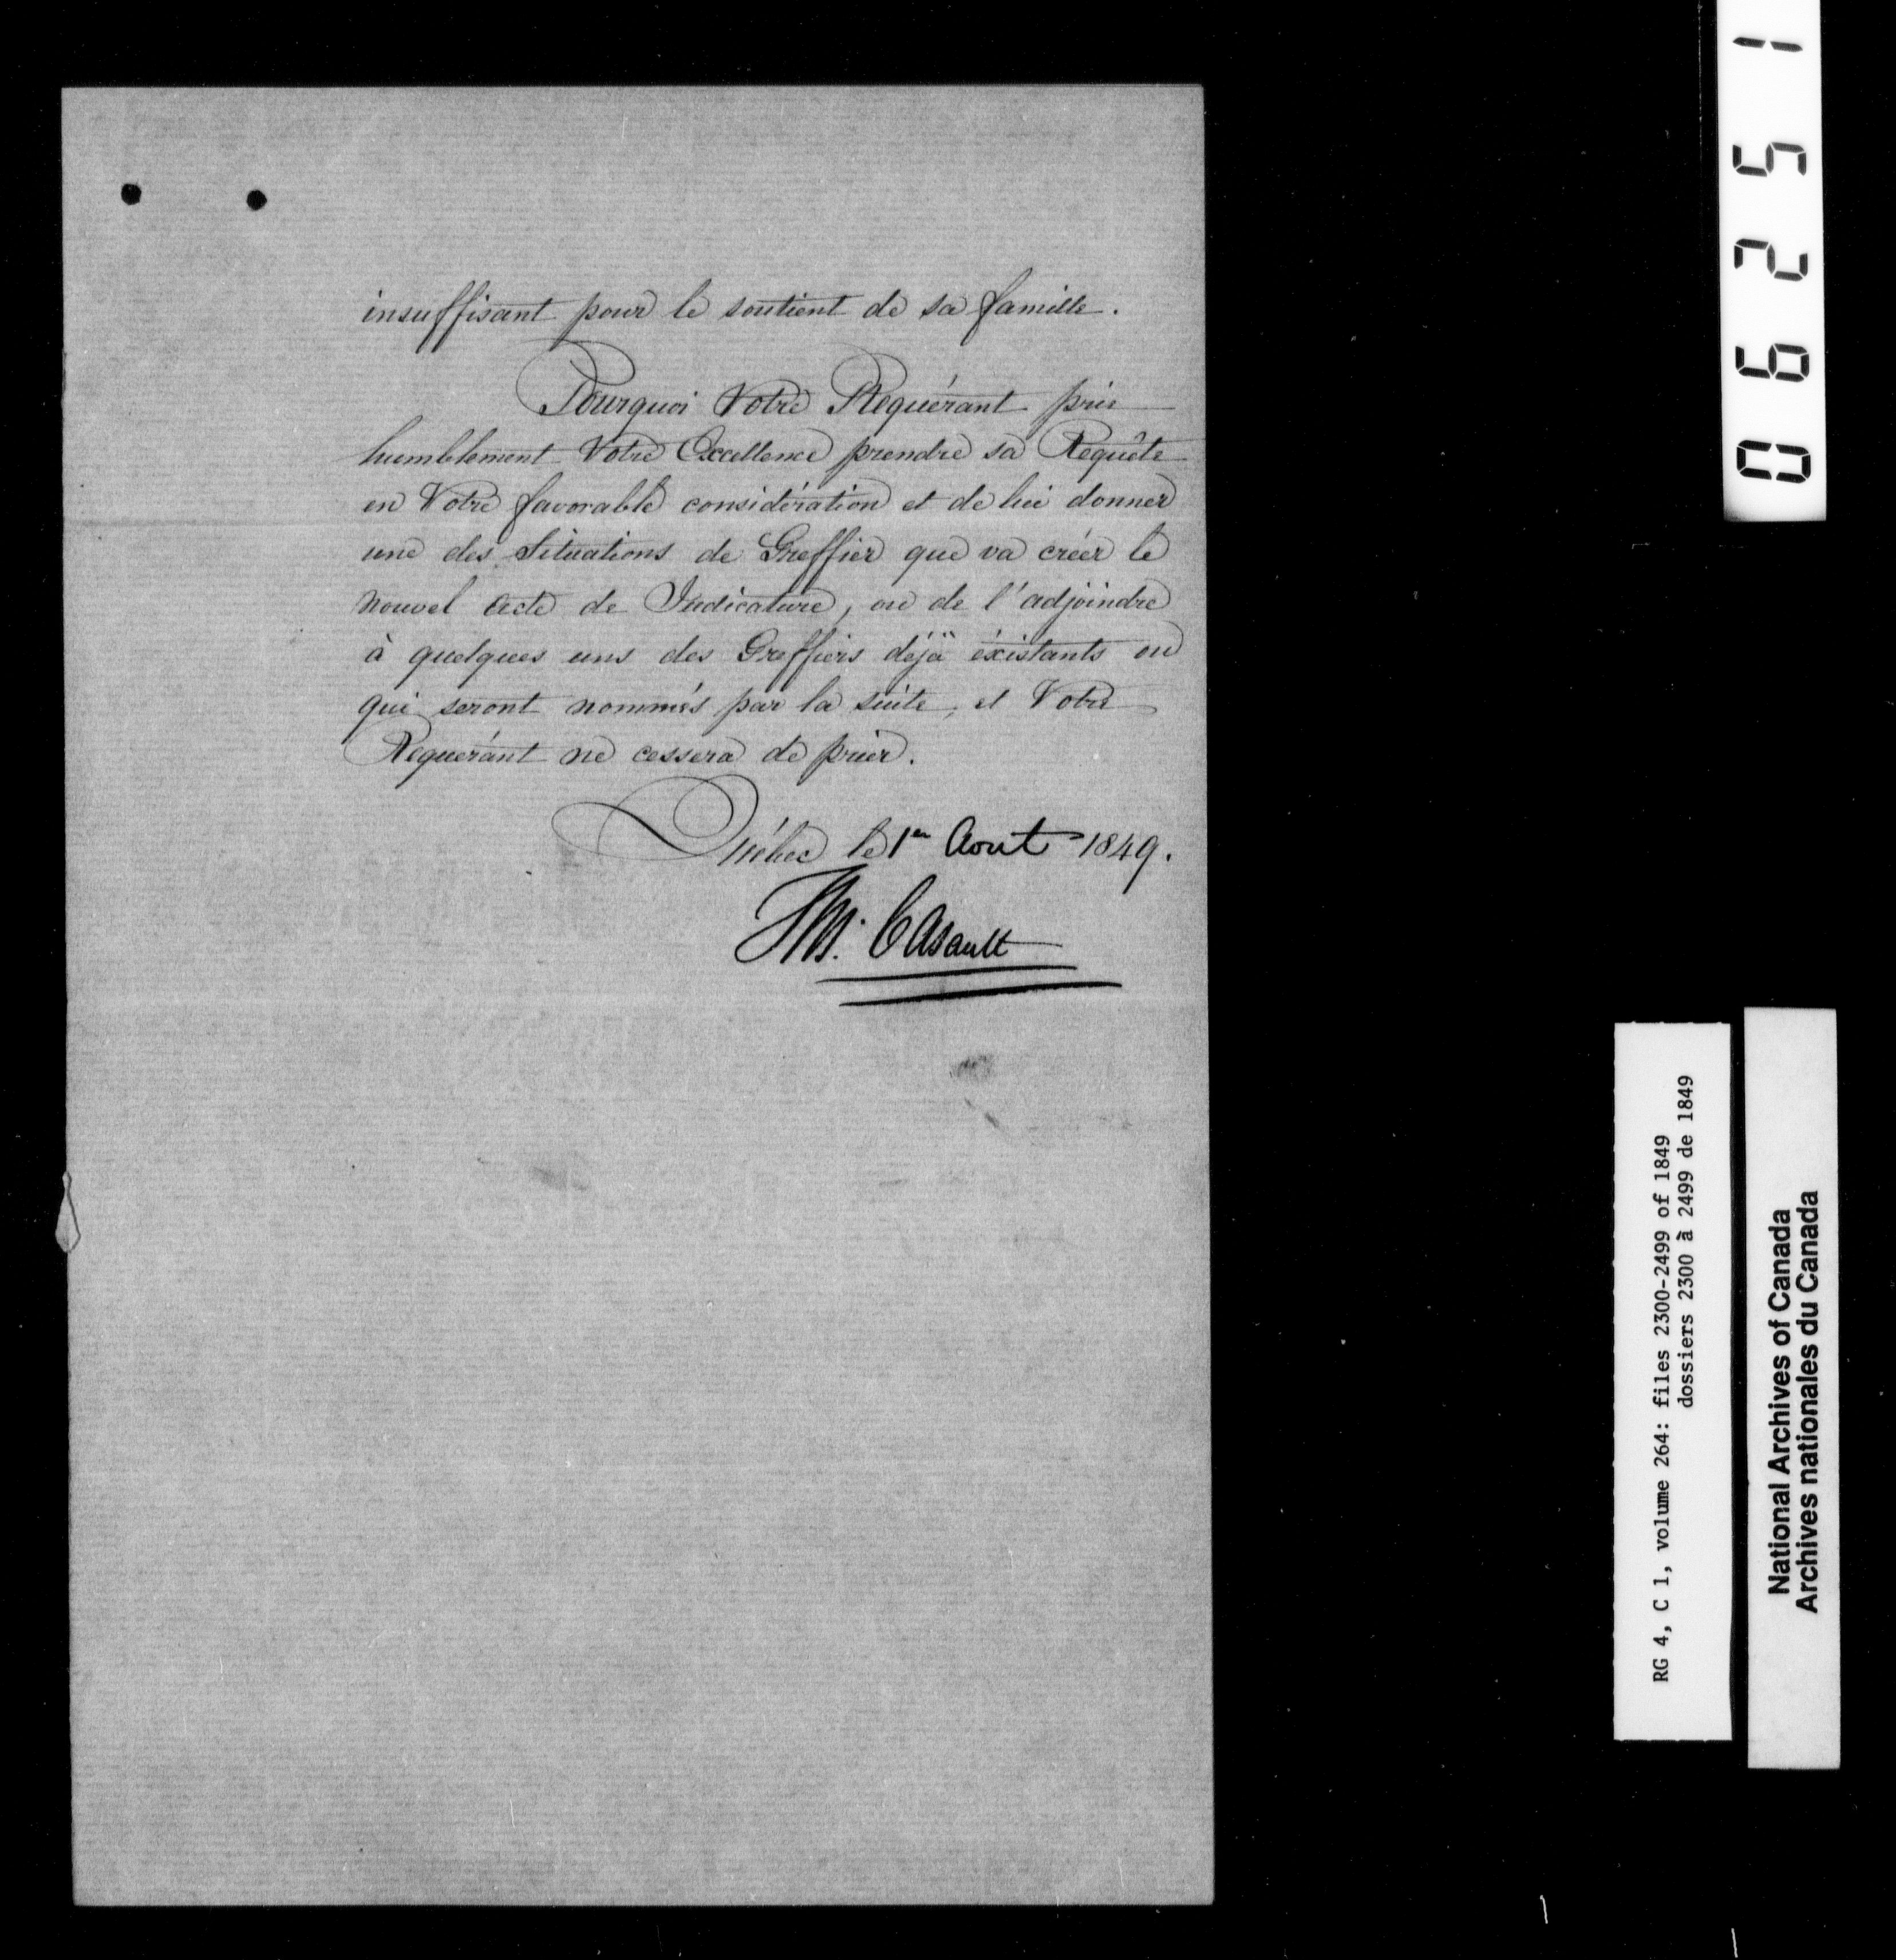 insuffisant pour le soutient de sa famille.
Pourquoi Votre Requérant prie
humblement Votre Excellence prendre sa Requête
en Votre favorable considération et de lui donner
une des Situations de Greffier que va créer le
nouvel acte de Judicature, ou de l'adjoindre
à quelques uns des Greffiers déjà éxistants ou
qui seront nommés par la suite, et Votre
Requérant ne cessera de prier.
Québec le 1er Aout 1849.
Casault
06251
RG 4, C 1, volume 264: files 2300-2499 of 1849
dossiers 2300 à 2499 de 1849
National Archives of Canada
Archives nationales du Canada